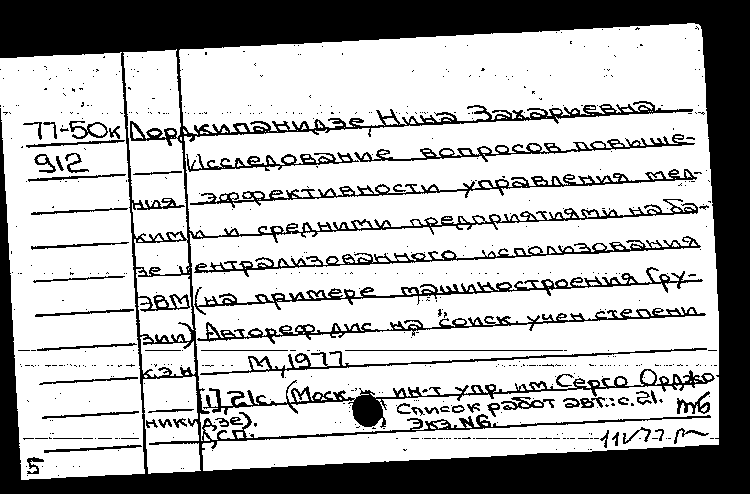 77-50к Лордкипанидзе, Нина Захарьевна.
912 Исследование вопросов повыше-
ния эффективности управления мел-
кими и средними предприятиями на ба-
зе централизованного использования
ЭВМ (на примере машиностроения Гру-
зии) Автореф. дис на соиск. учен. степени
к.э.н. М., 1977.
[1], 21с. (Моск. ин-т упр. им. Серго Орджо-
никидзе). Список работ авт.: с. 21. mб
Экз. №6.
5